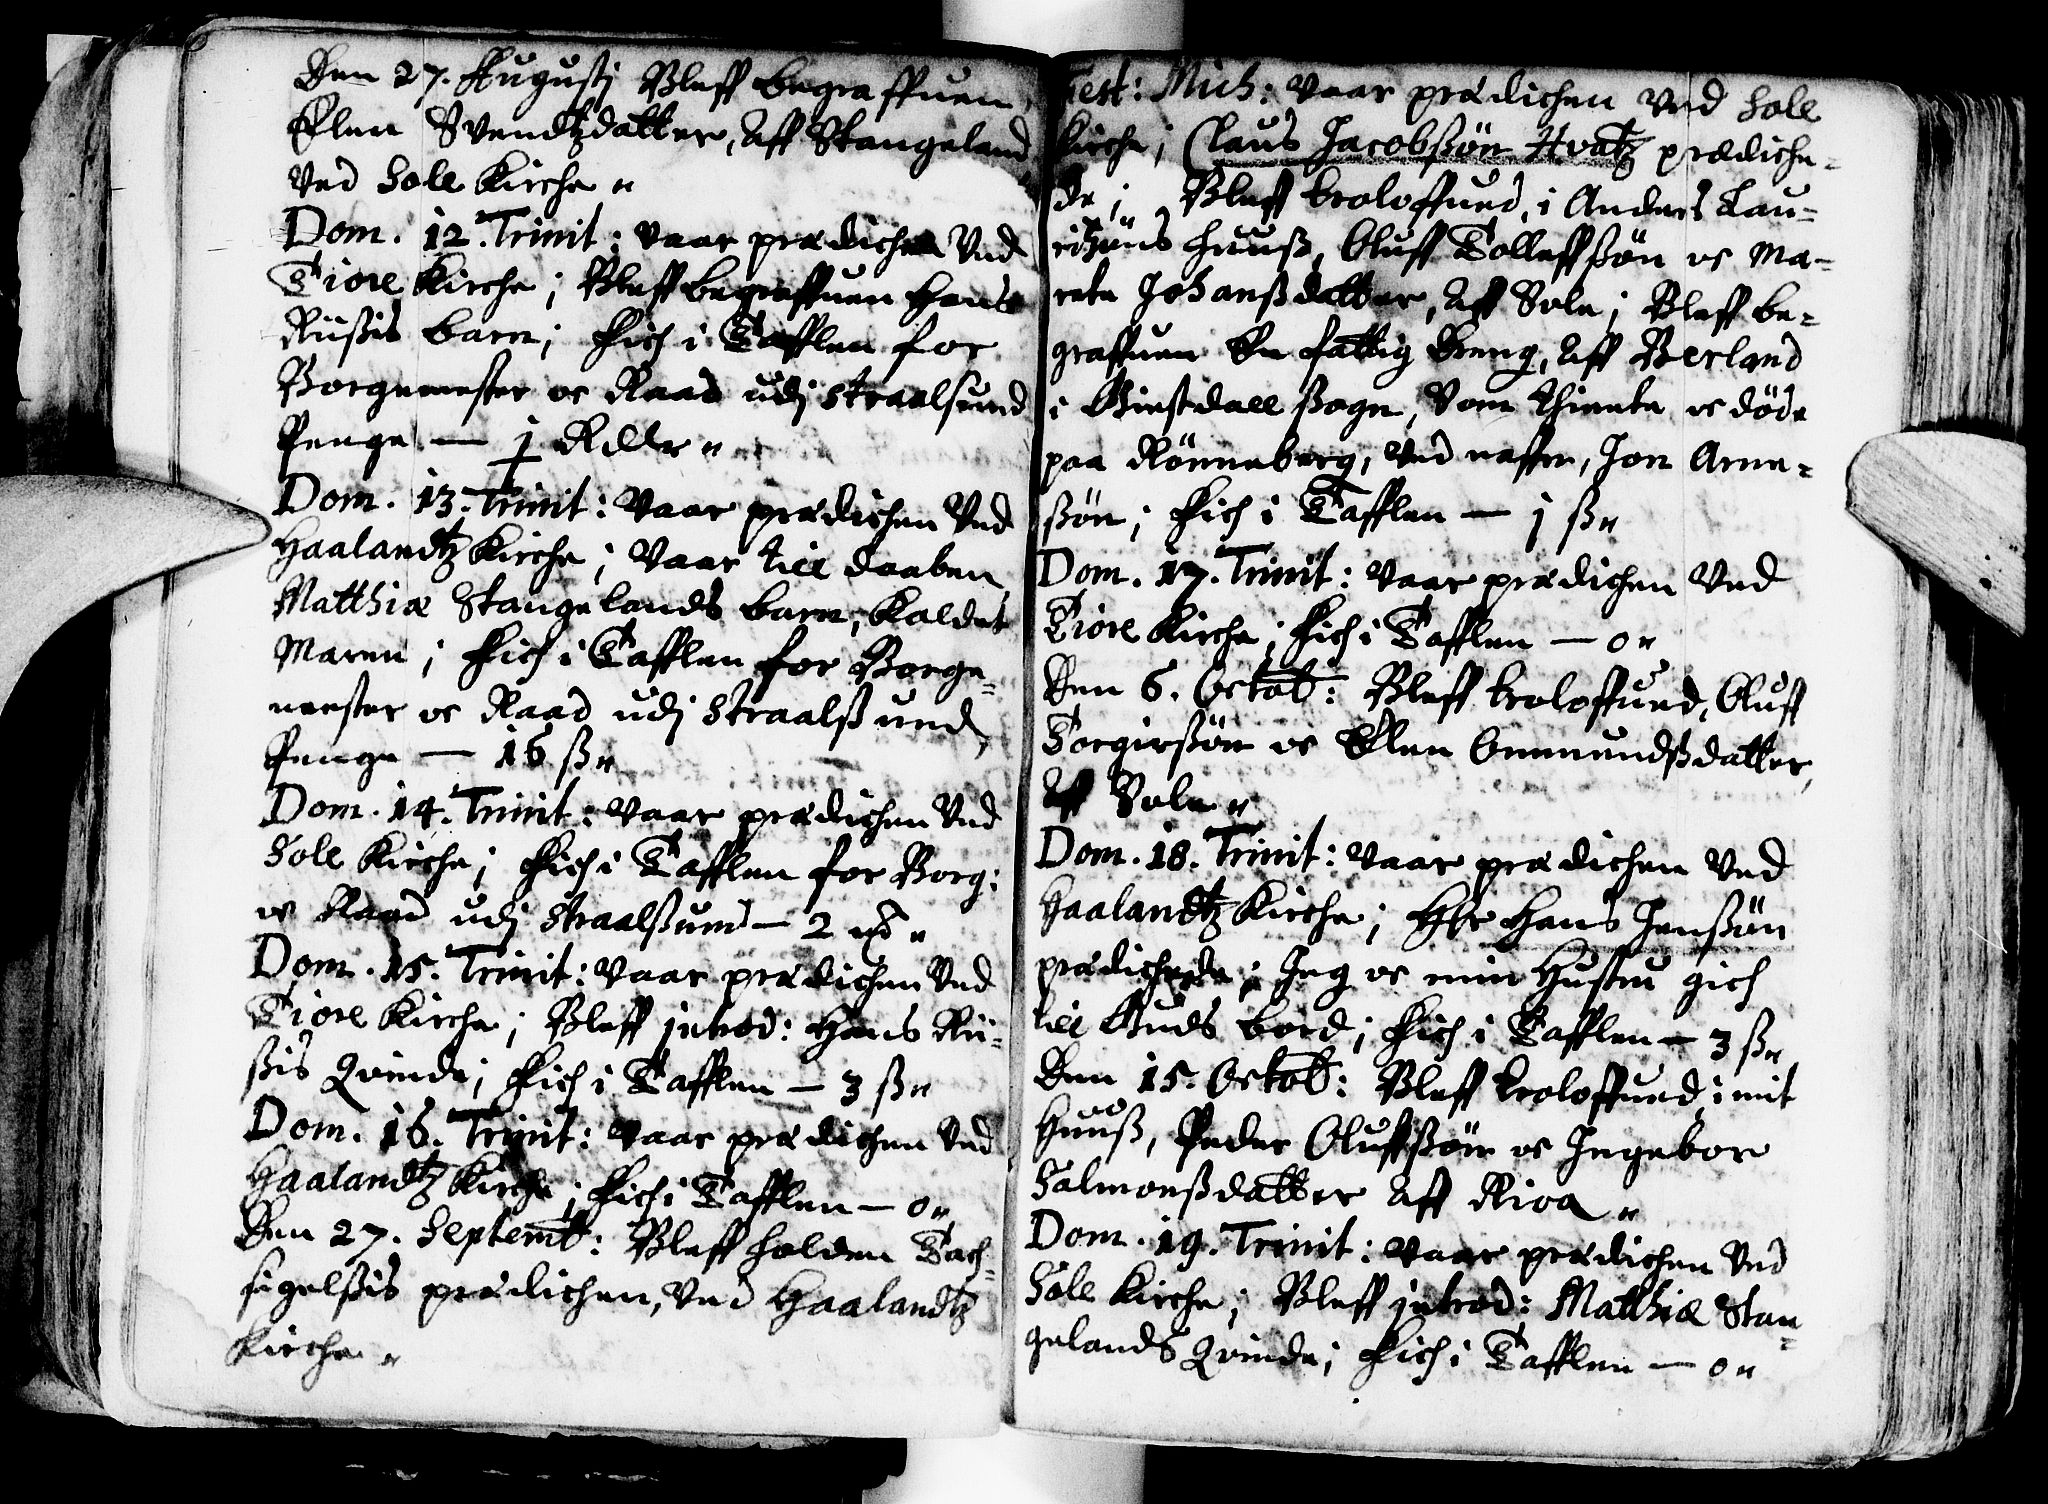 Den 27. Augustj Bleff begraffuen,
Elen Svendtzdatter, aff Stangeland
Ved Sole Kirche "
Dom. 12. Trinit: vaar prædichen Ved
Tiore Kirche; Bleff begraffuen Hans
Riißis barn; Fich i Tafflen for
Borgemester oc Raad udj Straalsund
Penge — 1 Rdlr "
Dom. 13. Trinit: vaar prædichen Ved
Haalandtz Kirche; Vaar till daaben
Matthiæ Stangelands barn, Kaldet
Maren; Fich i Tafflen for Borge-
mester oc Raad udj Straalßund,
Penge — 16 ß "
Dom. 14. Trinit: vaar prædichen Ved
Sole Kirche; Fich i Tafflen for Borg:
oc Raad udj Straalßund — 2 "
Dom. 15. Trinit: vaar prædichen Ved
Tiore Kirche; Bleff introd: Hans Rii-
ßis Qvinde; Fich i Tafflen — 3 ß "
Dom. 16. Trinit: vaar prædichen Ved
Haalandtz Kirche; Fich i Tafflen — 0 "
Den 27. Septemb: Bleff holden Tach-
sigelßis prædichen, Ved Haalandtz
Kirche "
Fest: Mich: vaar prædichen Ved Sole
Kirche; Claus Jacobßön Hvatz prædiche-
de; Bleff troloffued, i Anders Lau-
ritzöns huuß, Oluff Tolleffßön oc Ma-
rete Johanßdatter, aff Sole; Bleff be-
graffuen En fattig dreng, aff Berland
i Giestdall Sogn, Som thiente oc döde
paa Rönneberg, Ved naffn, Jon Arne-
ßön; Fich i Tafflen — 1 ß "
Dom. 17. Trinit: vaar prædichen Ved
Tiore Kirche; Fich i Tafflen — 0 "
Den 6. Octob: Bleff troloffued, Oluff
Torgirßön oc Elen Ommundßdatter,
aff Sole "
Dom. 18. Trinit: vaar prædichen Ved
Haalandtz Kirche; Her Hans Jenßön
prædichede; Jeg oc min Hustru gich
till Guds bord; Fich i Tafflen — 3 ß "
Den 15. Octob: Bleff troloffued, i mit
Huuß, Peder Oluffßön oc Ingebor
Salmonßdatter aff Rioa "
Dom. 19. Trinit: vaar prædichen Ved
Sole Kirche; Bleff introd: Matthiæ Stan-
gelands Qvinde; Fich i Tafflen — 0 "